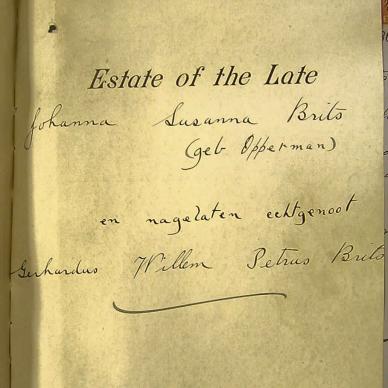 Estate of the Late
Johanna Susanna Brits
(geb Opperman)
en nagelaten echtgenoot
Gerhardus Willem Petrus Brits